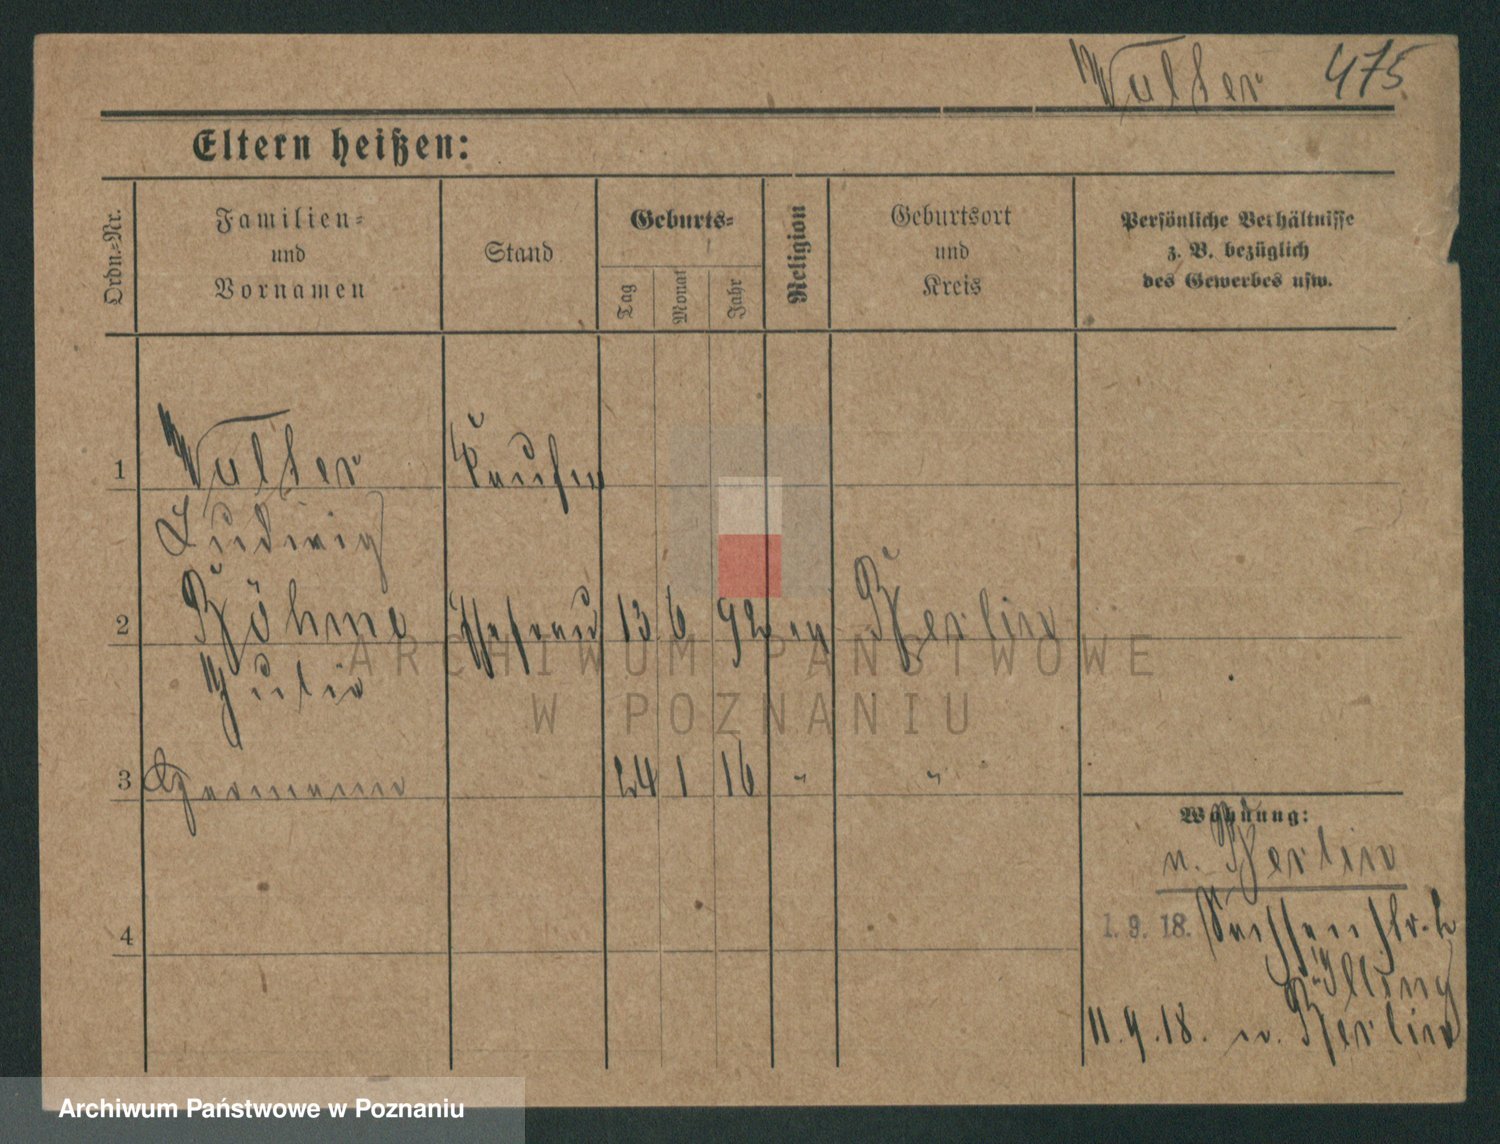 Walter 475
Eltern heißen:
Ordn.-Nr.
Familien-
und
Vornamen
Stand
Geburts-
Tag
Monat
Jahr
Religion
Geburtsort
und
Kreis
Persönliche Verhältnisse
z. B. bezüglich
des Gewerbes usw.
1 Walter Kaufm
Ludwig
2 Böhme Ehefrau 13 6 92 ev Berlin
Julie
3 Hermann 24 1 16 " "
Wohnung:
n. Berlin
1. 9. 18. str. 2
Illing
11.9.18. n. Berlin
4
ARCHIWUM PAŃSTWOWE
W POZNANIU
Archiwum Państwowe w Poznaniu